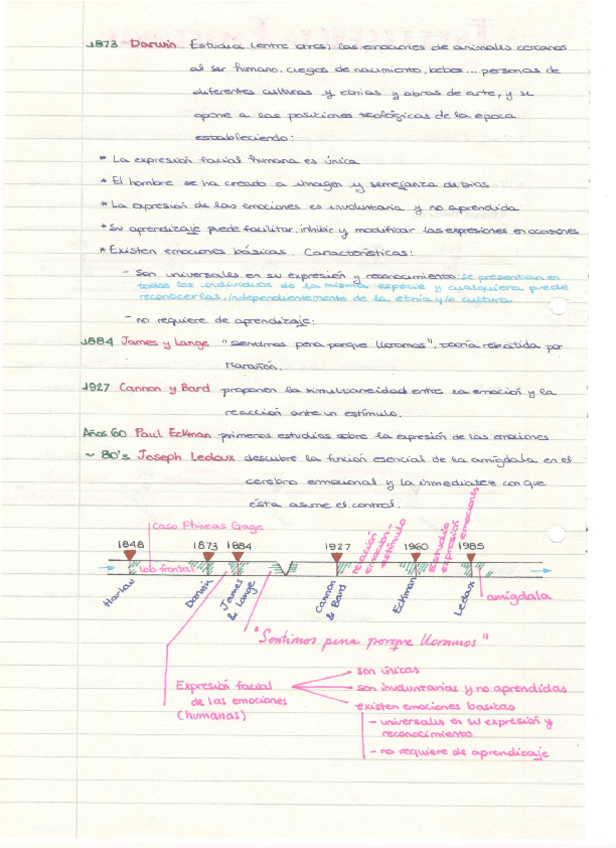 1873 Darwin Estudia (entre otros) las emociones de animales cercanos
al ser humano, ciegos de nacimiento, bebes... personas de
diferentes culturas y etnias y obras de arte, y se
opone a las posiciones teológicas de la época
estableciendo:
* La expresión facial humana es única
* El hombre se ha creado a imagen y semejanza de Dios
* La expresión de las emociones es involuntaria y no aprendida
* Su aprendizaje puede facilitar, inhibir y modificar las expresiones en ocasiones
* Existen emociones básicas. Características:
- Son universales en su expresión y reconocimiento: se presentan en
todos los individuos de la misma especie y cualquiera puede
reconocerlas, independientemente de la etnia y/o cultura
- no requiere de aprendizaje:
1884 James y Lange "sentimos pena porque lloramos", teoría rebatida por
Marañón.
1927 Cannon y Bard proponen la simultaneidad entre la emoción y la
reacción ante un estímulo.
Años 60 Paul Eckman primeros estudios sobre la expresión de las emociones
~ 80's Joseph Ledoux descubre la función esencial de la amígdala en el
cerebro emocional y la inmediatez con que
ésta asume el control.
Caso Phineas Gage
1848 1873 1884 1927 1960 1985
relación emoción-estímulo
Estudio expresión emociones
lob. frontal
Harlow Darwin James & Lange Cannon & Bard Eckman Ledoux
amígdala
"Sentimos pena porque lloramos"
Expresión facial
de las emociones
(humanas)
son únicas
son involuntarias y no aprendidas
existen emociones basicas
- universales en su expresión y
reconocimiento
- no requiere de aprendizaje